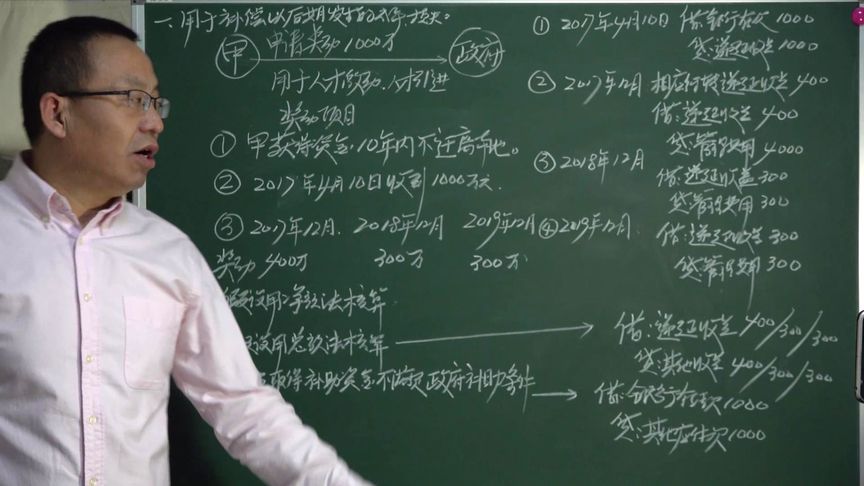 一、用于补偿以后期发生的
甲 申请奖励1000万 政府
用于人才激励、人才引进
奖励项目
① 甲获得资金,10年内不迁离本地。
② 2017年4月10日收到1000万元
③ 2017年12月 2018年12月 2019年12月
奖励 400万 300万 300万
用净额法核算
用总额法核算
取得补助资金不满足政府补助条件
① 2017年4月10日 借:银行存款1000
贷:递延收益1000
② 2017年12月 相应结转递延收益400
借:递延收益400
贷:管理费用4000
③ 2018年12月 借:递延收益300
贷:管理费用300
④ 2019年12月 借:递延收益300
贷:管理费用300
借:递延收益400/300/300
贷:其他收益400/300/300
借:银行存款1000
贷:其他应付款1000